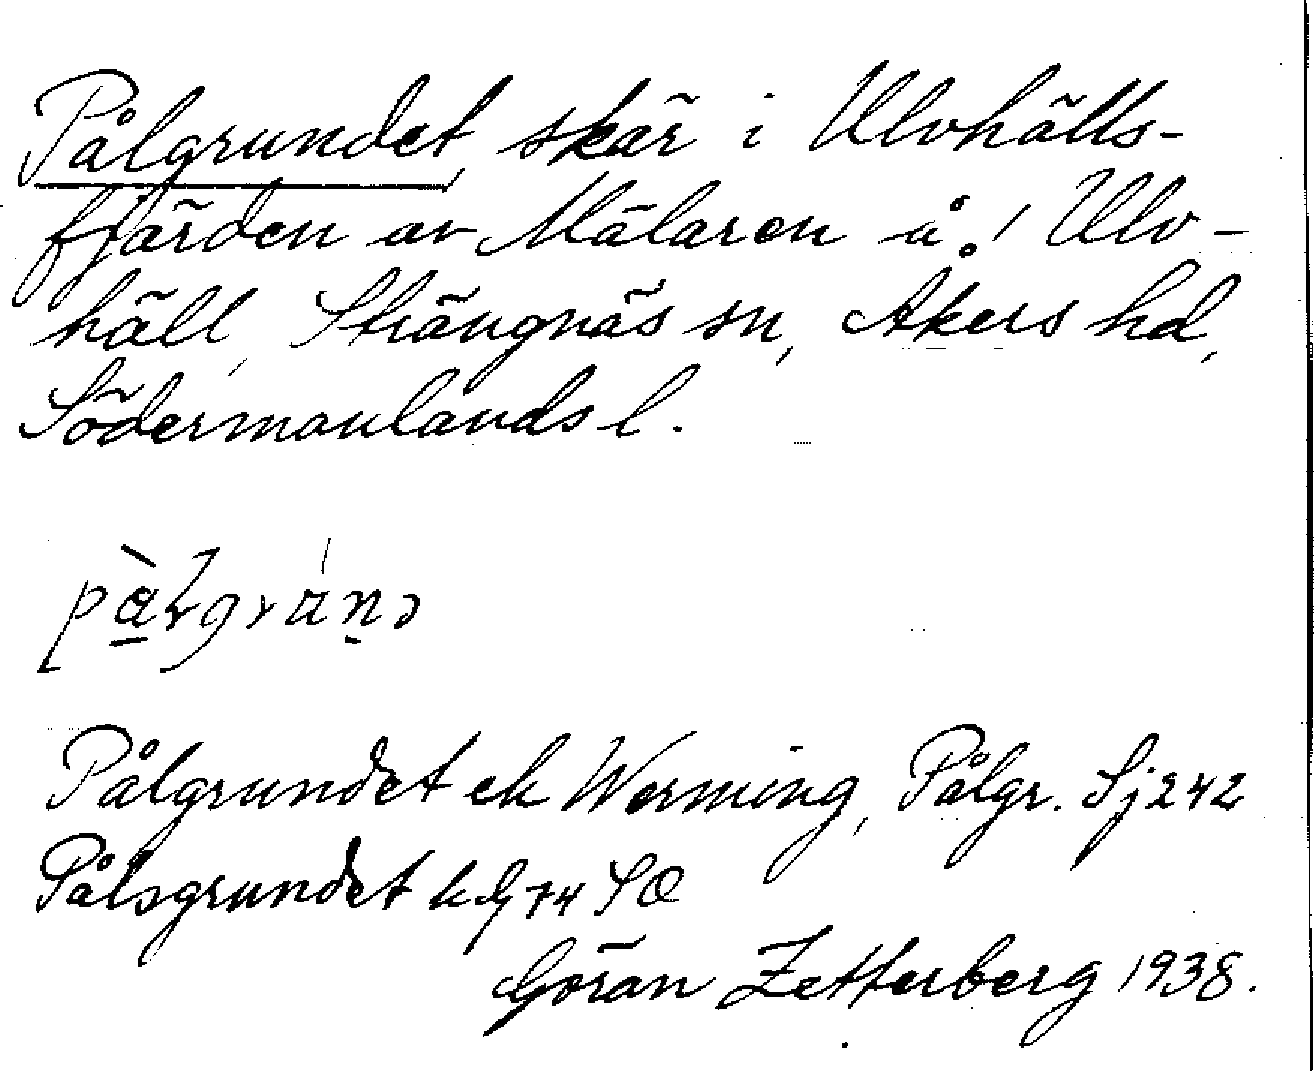 Pålgrundet, skär i Ulvhälls-
fjärden av Mälaren å. ! Ulv-
häll, Strängnäs sn, Åkers hd,
Södermanlands l.
Pålgrundet ek Werming, Pålgr. Sj 242
Pålsgrundet 74 SO
Göran Zetterberg 1938.